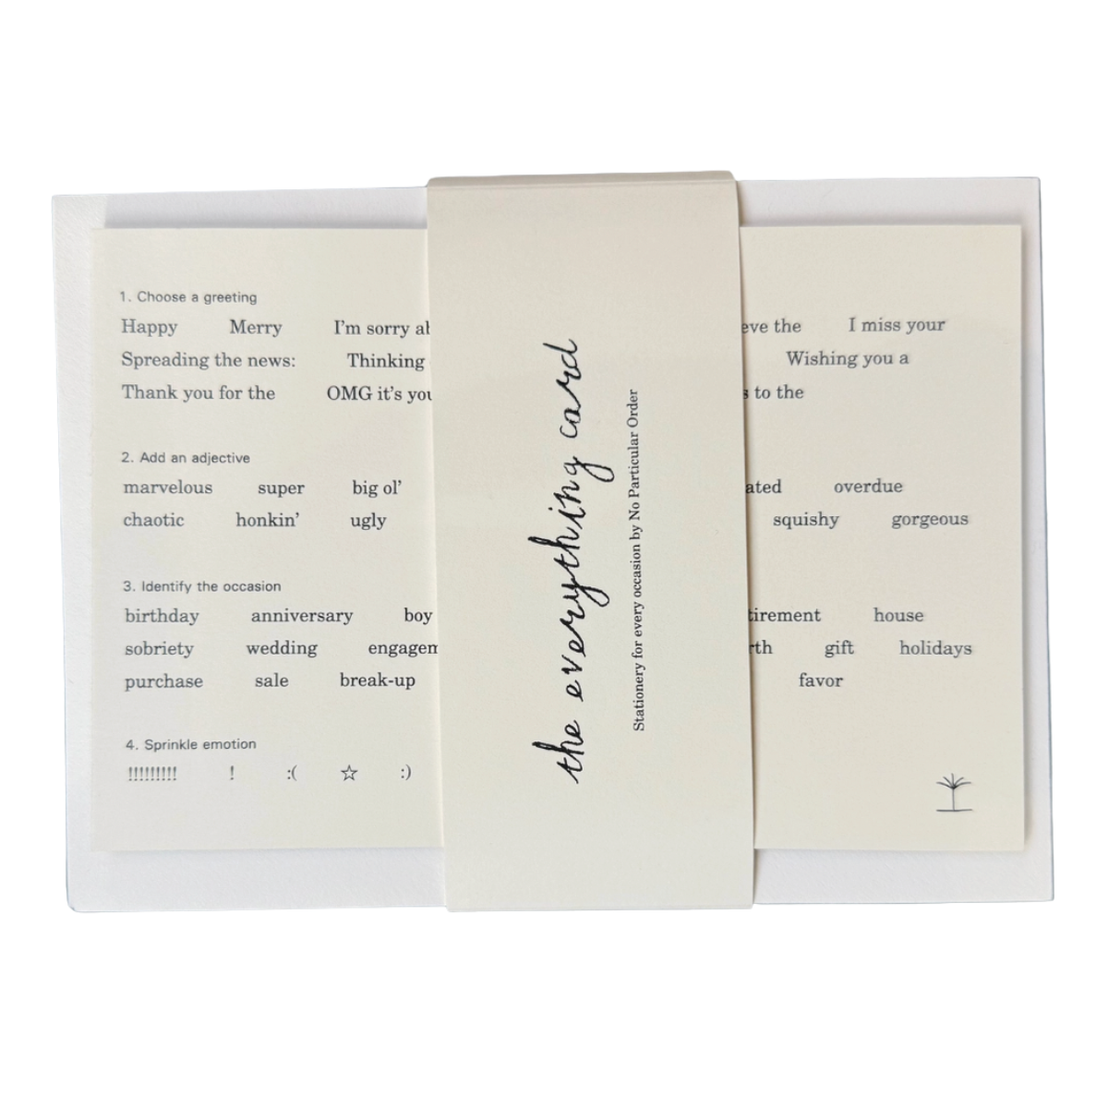 1. Choose a greeting
Happy Merry I'm sorry ab eve the I miss your
Spreading the news: Thinking Wishing you a
Thank you for the OMG it's you s to the
2. Add an adjective
marvelous super big ol' ated overdue
chaotic honkin' ugly squishy gorgeous
3. Identify the occasion
birthday anniversary boy tirement house
sobriety wedding engagem rth gift holidays
purchase sale break-up favor
4. Sprinkle emotion
!!!!!!!!! ! :( ☆ :)
the everything card
Stationery for every occasion by No Particular Order